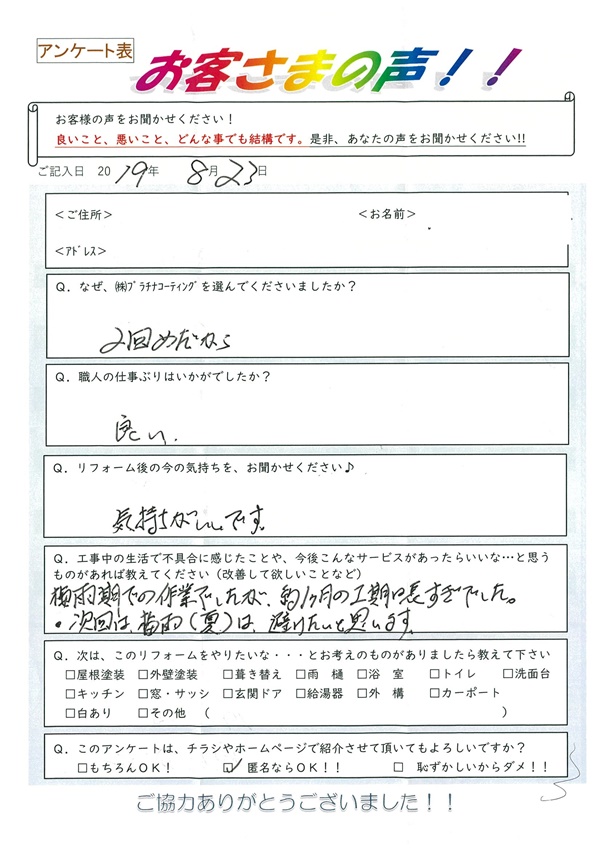 アンケート表
お客さまの声！！
お客様の声をお聞かせください！
良いこと、悪いこと、どんな事でも結構です。是非、あなたの声をお聞かせください!!
ご記入日 2019年 8月23日
＜ご住所＞ ＜お名前＞
＜ｱﾄﾞﾚｽ＞
Q．なぜ、㈱ﾌﾟﾗﾁﾅｺｰﾃｨﾝｸﾞを選んでくださいましたか？
2回めだから
Q．職人の仕事ぶりはいかがでしたか？
良い．
Q．リフォーム後の今の気持ちを、お聞かせください♪
気持ちがいいです。
Q．工事中の生活で不具合に感じたことや、今後こんなサービスがあったらいいな…と思う
ものがあれば教えてください（改善して欲しいことなど）
梅雨期での作業でしたが、約1ヶ月の工期は長すぎでした。
・次回は、梅雨（夏）は、避けたいと思います。
Q．次は、このリフォームをやりたいな・・・とお考えのものがありましたら教えて下さい
□屋根塗装 □外壁塗装 □葺き替え □雨 樋 □浴 室 □トイレ □洗面台
□キッチン □窓・サッシ □玄関ドア □給湯器 □外 構 □カーポート
□白あり □その他 （ ）
Q．このアンケートは、チラシやホームページで紹介させて頂いてもよろしいですか？
□もちろんOK！ ☑ 匿名ならOK！！ □ 恥ずかしいからダメ！！
ご協力ありがとうございました！！